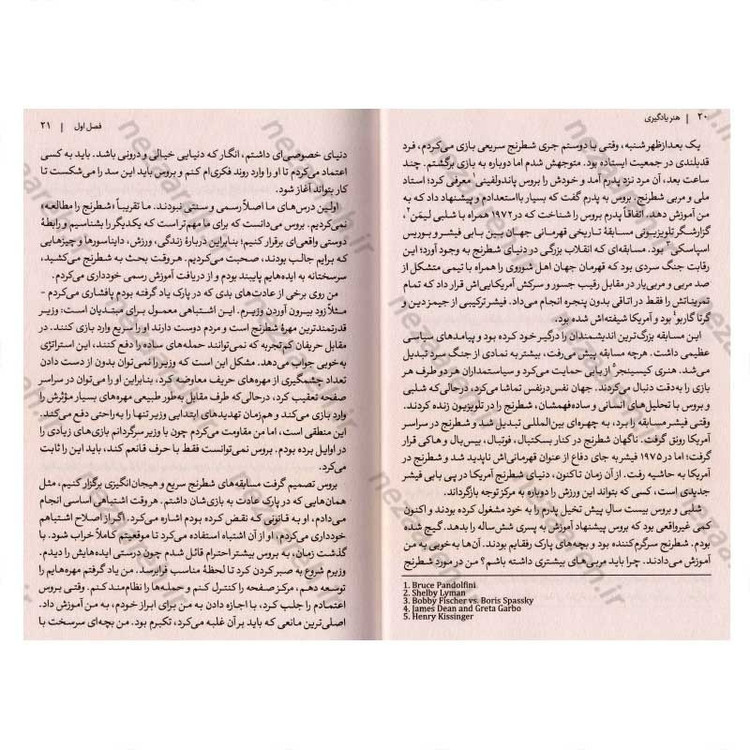 ۲۰ | هنر یادگیری
یک بعدازظهر شنبه، وقتی با دوستم جری شطرنج سریعی بازی می‌کردم، فرد
قدبلندی در جمعیت ایستاده بود. متوجهش شدم اما دوباره به بازی برگشتم. چند
ساعت بعد، آن مرد نزد پدرم آمد و خودش را بروس پاندولفینی¹ معرفی کرد؛ استاد
ملی و مربی شطرنج. بروس به پدرم گفت که بسیار بااستعدادم و پیشنهاد داد که به
من آموزش دهد. اتفاقاً پدرم بروس را شناخت که در ۱۹۷۲ همراه با شلبی لیمَن²،
گزارشگر تلویزیونی مسابقهٔ تاریخی قهرمانی جهان بین بابی فیشر و بوریس
اسپاسکی³ بود. مسابقه‌ای که انقلاب بزرگی در دنیای شطرنج به وجود آورد؛ این
رقابت جنگ سردی بود که قهرمان جهان اهل شوروی را همراه با تیمی متشکل از
صد مربی و مربی‌یار در مقابل رقیب جسور و سرکش آمریکایی‌اش قرار داد که تمام
تمریناتش را فقط در اتاقی بدون پنجره انجام می‌داد. فیشر ترکیبی از جیمز دین و
گرتا گاربو⁴ بود و آمریکا شیفته‌اش شده بود.
این مسابقه بزرگ‌ترین اندیشمندان را درگیر خود کرده بود و پیامدهای سیاسی
عظیمی داشت. هرچه مسابقه پیش می‌رفت، بیشتر به نمادی از جنگ سرد تبدیل
می‌شد. هنری کیسینجر⁵ از بابی حمایت می‌کرد و سیاستمداران هر دو طرف هر
بازی را به‌دقت دنبال می‌کردند. جهان نفس‌درنفس تماشا می‌کرد، درحالی‌که شلبی
و بروس با تحلیل‌های انسانی و ساده‌فهمشان، شطرنج را در تلویزیون زنده کردند.
وقتی فیشر مسابقه را برد، به چهره‌ای بین‌المللی تبدیل شد و شطرنج در سراسر
آمریکا رونق گرفت. ناگهان شطرنج در کنار بسکتبال، فوتبال، بیس‌بال و هاکی قرار
گرفت؛ اما در ۱۹۷۵ فیشر به جای دفاع از عنوان قهرمانی‌اش ناپدید شد و شطرنج در
آمریکا به حاشیه رفت. از آن زمان تاکنون، دنیای شطرنج آمریکا در پی بابی فیشر
جدیدی است، کسی که بتواند این ورزش را دوباره به مرکز توجه بازگرداند.
شلبی و بروس بیست سالِ پیش تخیل پدرم را به خود مشغول کرده بودند و اکنون
کمی غیرواقعی بود که بروس پیشنهاد آموزش به پسری شش‌ساله را بدهد. گیج شده
بودم. شطرنج سرگرم‌کننده بود و بچه‌های پارک رفقایم بودند. آن‌ها به‌خوبی به من
آموزش می‌دادند. چرا باید مربی‌های بیشتری داشته باشم؟ من در مورد شطرنج
1. Bruce Pandolfini
2. Shelby Lyman
3. Bobby Fischer vs. Boris Spassky
4. James Dean and Greta Garbo
5. Henry Kissinger
فصل اول | ۲۱
دنیای خصوصی‌ای داشتم، انگار که دنیایی خیالی و درونی باشد. باید به کسی
اعتماد می‌کردم تا او را وارد روند فکری‌ام کنم و بروس باید این سد را می‌شکست تا
کار بتواند آغاز شود.
اولین درس‌های ما اصلاً رسمی و سنتی نبودند. ما تقریباً «شطرنج را مطالعه»
نمی‌کردیم. بروس می‌دانست که برای ما مهم‌تر است که یکدیگر را بشناسیم و رابطهٔ
دوستی واقعی‌ای برقرار کنیم؛ بنابراین دربارهٔ زندگی، ورزش، دایناسورها و چیزهایی
که برایم جالب بودند، صحبت می‌کردیم. هروقت بحث به شطرنج می‌کشید،
سرسختانه به ایده‌هایم پایبند بودم و از دریافت آموزش رسمی خودداری می‌کردم.
من روی برخی از عادت‌های بدی که در پارک یاد گرفته بودم پافشاری می‌کردم -
مثلاً زود بیرون آوردن وزیرم. این اشتباهی معمول برای مبتدیان است: وزیر
قدرتمندترین مهرهٔ شطرنج است و مردم دوست دارند او را سریع وارد بازی کنند. در
مقابل حریفان کم‌تجربه که نمی‌توانند حمله‌های ساده را دفع کنند، این استراتژی
به‌خوبی جواب می‌دهد. مشکل این است که وزیر را نمی‌توان بدون از دست دادن
تعداد چشمگیری از مهره‌های حریف معاوضه کرد، بنابراین او را می‌توان در سراسر
صفحه تعقیب کرد، درحالی‌که طرف مقابل به‌طور طبیعی مهره‌های بسیار مؤثرش را
وارد بازی می‌کند و هم‌زمان تهدیدهای ابتدایی وزیر تنها را به‌راحتی دفع می‌کند.
این منطقی است، اما من مقاومت می‌کردم چون با وزیر سرگردانم بازی‌های زیادی را
در اوایل برده بودم. بروس نمی‌توانست فقط با حرف قانعم کند، باید این را ثابت
می‌کرد.
بروس تصمیم گرفت مسابقه‌های شطرنج سریع و هیجان‌انگیزی برگزار کنیم، مثل
همان‌هایی که در پارک عادت به بازی‌شان داشتم. هروقت اشتباهی اساسی انجام
می‌دادم، او به قانونی که نقض کرده بودم اشاره می‌کرد. اگر از اصلاح اشتباهم
خودداری می‌کردم، او از آن اشتباه استفاده می‌کرد تا موقعیتم کاملاً خراب شود. با
گذشت زمان، به بروس بیشتر احترام قائل شدم چون درستی ایده‌هایش را دیدم.
وزیرم شروع به صبر کردن کرد تا لحظهٔ مناسب فرارسد. من یاد گرفتم مهره‌هایم را
توسعه دهم، مرکز صفحه را کنترل کنم و حمله‌ها را نظام‌مند کنم. وقتی بروس
اعتمادم را جلب کرد، با اجازه دادن به من برای ابراز خودم، به من آموزش داد.
اصلی‌ترین مانعی که باید بر آن غلبه می‌کرد، تکبرم بود. من بچه‌ای سرسخت با